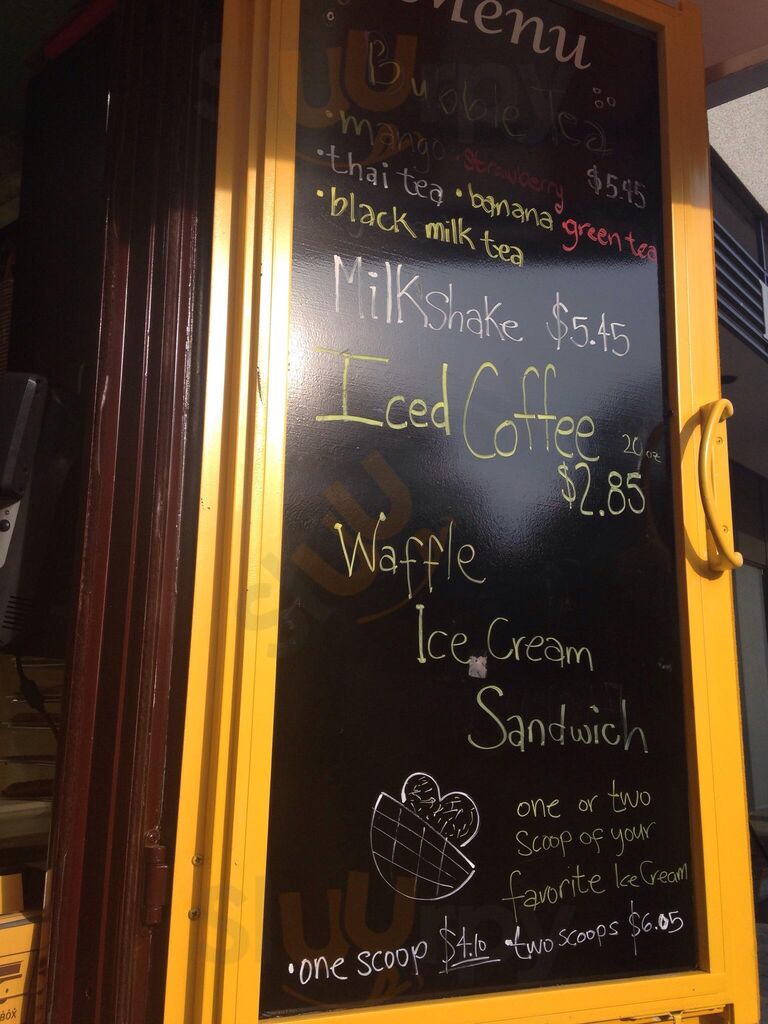 Menu
Bubble Tea
• mango • strawberry $5.45
• thai tea • banana • green tea
• black milk tea
Milkshake $5.45
Iced Coffee 20 oz
$2.85
Waffle
Ice Cream
Sandwich
one or two
scoop of your
favorite Ice Cream
• one scoop $4.10 • two scoops $6.05